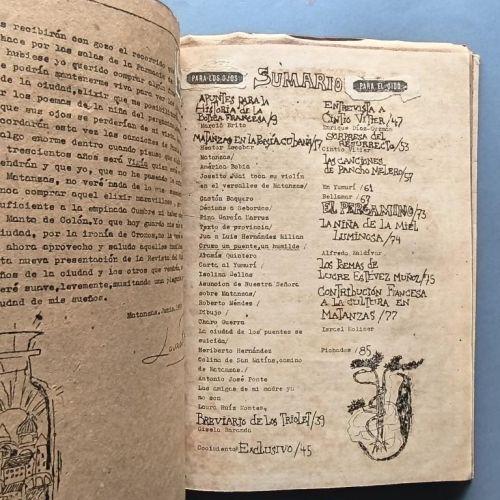 s recibirán con gozo el recorrido
hace por las salas de la Farmacia
hubiese yo querido comprar algún
podría mantenerme viva para ver los
de la ciudad, elixir que me posibi
r los poemas de la niña del pergamino
que sus ojos se perderían de mi vis
cordarán esta vez las canciones de Pancho
algo enorme dentro cuando pienso que
trescientos años será
endrán y que yo, que no he pasado la
Matanzas, no veré nada de lo que ve
no comprar aquel elixir maravilloso
uficiente a la empinada Cumbre ni
l Manto de Colón. Yo que hoy guardo mis
ciudad, por la ironía de Cronos, no la
ahora aprovecho y saludo aquellas
ta nueva presentación de la Revista del
años de la ciudad y los otros que vendrán
eré suave, levemente, musitando una
udad de mis sueños.
Matanzas, Junio,
PARA LOS OJOS
SUMARIO
PARA EL OIDO
APUNTES PARA LA
HISTORIA DE LA
BOTICA FRANCESA/9
Marcio Brito
MATANZAS EN LA POESÍA CUBANA/17
Néstor Escobar
Matanzas/
América Bobia
Joseíto Juai toca su violín
en el versalles de Matanzas/
Gastón Baquero
Décimas a Seboruco/
Fina García Marruz
Texto de provincia/
Jua a Luis Hernández Milian
Cruzo un puente, un humilde/
Abraís Quintero
Carta al Yumurí/
Isolina Bellas
Asunción de Nuestra Señora
sobre Matanzas/
Roberto Méndez/
Dibujo/
Charo Guerra
La ciudad de los puentes se
suicida/
Heriberto Hernández
Colina de San Matías, camino
de Matanzas./
Antonio José Ponte
Las amigas de mi madre ya
no son
Laura Ruiz Montes
BREVIARIO DE LOS TRIOLET/39
Gisela Baranda
Cocimiento EXCLUSIVO/45
ENTREVISTA A
CINTIO VITIER/47
Enrique Díez-Guzmán
SORPRESA DEL
RESURRECTO/53
Cintio Vitier
LAS CANCIONES
DE PANCHO MELERO/57
En Yumurí/61
Bellamar/67
EL PERGAMINO/73
LA NIÑA DE LA MIEL
LUMINOSA/74
Alfredo Zaldívar
LOS POEMAS DE
LUCRE ESTEVEZ MUÑOZ/75
CONTRIBUCIÓN FRANCESA
A LA CULTURA EN
MATANZAS/77
Israel Moliner
Fichados/85